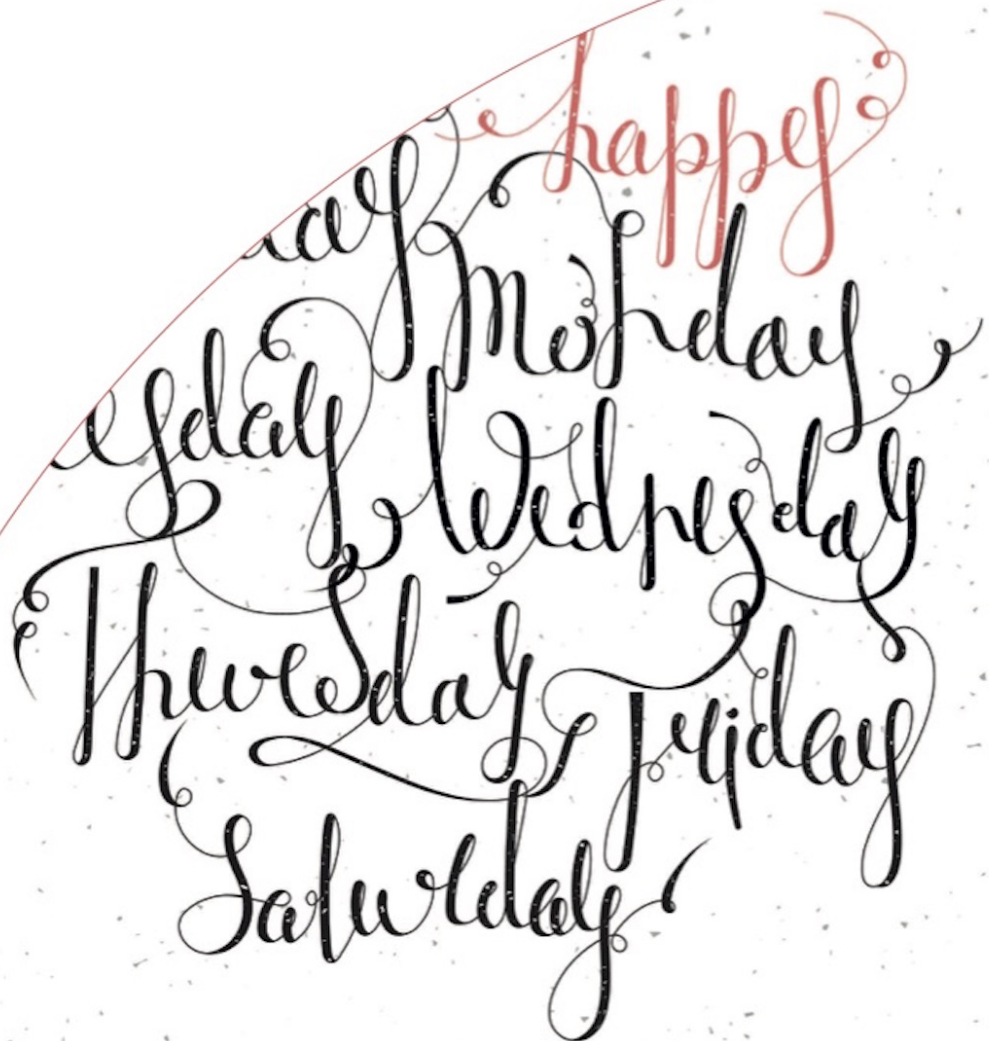 happy
ay Monday
esday Wednesday
Thursday Friday
Saturday